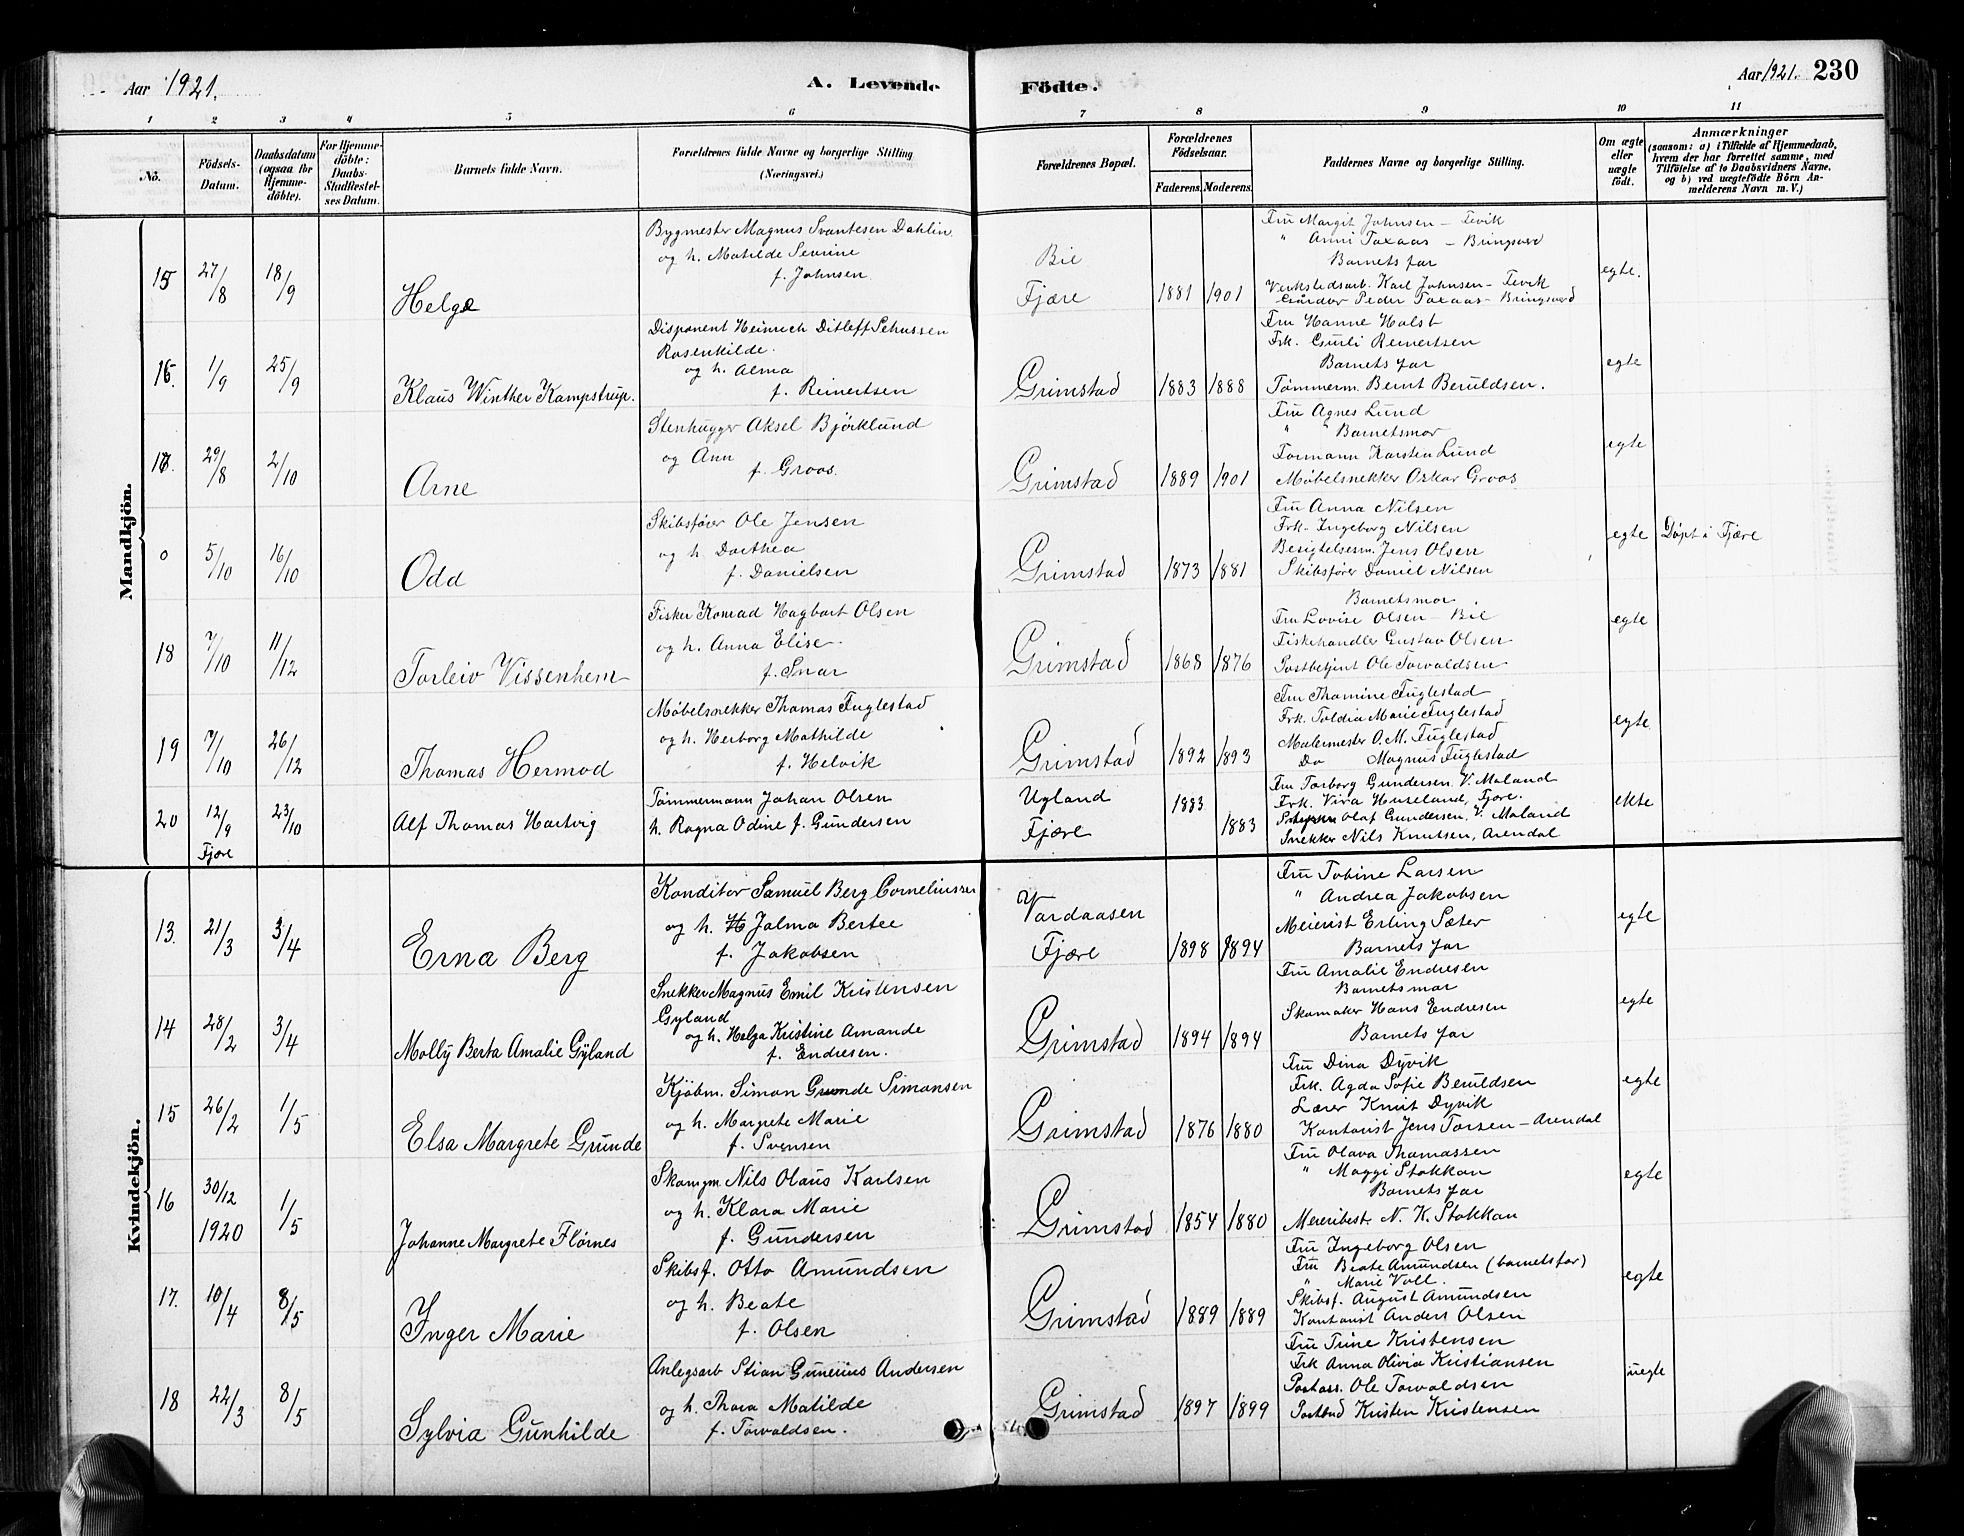 Aar 1921.
A. Levende
Födte.
Aar 1921. 230
1 2 3 4 5 6 7 8 9 10 11
No.
Födsels-Datum.
Daabsdatum (ogsaa for Hjemme-döbte).
For Hjemme-döbte: Daabs-Stadfæstel-ses Datum.
Barnets fulde Navn.
Forældrenes fulde Navne og borgerlige Stilling (Næringsvei.)
Forældrenes Bopæl.
Forældrenes Födselsaar.
Faderens. Moderens.
Faddernes Navne og borgerlige Stilling.
Om ægte eller uægte födt.
Anmærkninger
(saasom: a) i Tilfælde af Hjemmedaab, hvem der har forrettet samme, med Tilföielse af to Daabsvidners Navne, og b) ved uægtefödte Börn An-melderens Navn m. V.)
Mandkjön.
15 27/8 18/9 Helge
Bygmester Magnus Svantesen Dahlin
og h. Matilde Sevrine
f. Johnsen
Bie
Fjære 1881 1901
Fru Margit Johnsen – Fevik
" Anni Taxaas – Bringsvær
Barnets far
Verkstedsarb. Karl Johnsen – Fevik
Gårdbr Peder Taxaas – Bringsværd
egte.
16. 1/9 25/9 Klaus Winther Kampstrup.
Disponent Heinrich Ditleff Schussen
Rosenkilde.
og h. Alma
f. Reinertsen
Grimstad 1883 1888
Fru Hanne Holst
Frk. Gurli Reinertsen
Barnets far
Tömmerm. Bernt Beruldsen.
egte
17. 29/8 2/10 Arne
Stenhugger Aksel Björklund
og Ann
f. Groos.
Grimstad 1889 1901
Fru Agnes Lund
" Barnetsmor
Formann Karsten Lund
Møbelsnekker Oskar Groos
egte
0 5/10 16/10 Odd
Skibsfører Ole Jensen
og h. Dorthea
f. Danielsen
Grimstad 1873 1881
Fru Anna Nilsen
Frk. Ingeborg Nilsen
Besigtelsesm. Jens Olsen
Skibsfører Daniel Nilsen
egte Döpt i Fjære
18 7/10 11/12 Torleiv Vissenhem
Fisker Konrad Hagbart Olsen
og h. Anna Elise.
f. Snar
Grimstad 1868 1876
Barnetsmor
Fru Lovise Olsen – Bie
Fiskehandler Gustav Olsen
Postbetjent Ole Torvaldsen
egte
19 7/10 26/12 Thomas Hermod
Møbelsnekker Thomas Fuglestad
og h. Herborg Mathilde
f. Helvik
Grimstad 1892 1893
Fru Thomine Fuglestad
Frk. Toldia Marie Fuglestad
Malermester O. M. Fuglestad
Do Magnus Fuglestad
egte
20 12/9 Fjære 23/10 Alf Thomas Hartvig
Tømmermann Johan Olsen
h. Ragna Odine f. Gundersen
Ugland
Fjære 1883 1883
Fru Torborg Gundersen V. Moland
Frk. Vira Huseland, Fjære.
Olaf Gundersen, V. Moland
Snekker Nils Knutsen, Arendal
ekte
Kvindekjön.
13. 21/3 3/4 Erna Berg
Konditor Samuel Berg Corneliussen
og h. Hjalma Bertee
f. Jakobsen
Vardaasen
Fjære 1898 1894
Fru Tobine Larsen
" Andrea Jakobsen
Meierist Erling Sæter
Barnets far
egte
14 28/2 3/4 Molly Berta Amalie Gyland
Snekker Magnus Emil Kristensen
Gyland
og h. Helga Kristine Amande
f. Endresen.
Grimstad 1894 1894
Fru Amalie Endresen
Barnetsmor
Skomaker Hans Endresen
Barnets far
egte
15 26/2 1/5 Elsa Margrete Grunde
Kjöbm. Simon Grunde Simonsen
og h. Margrete Marie
f. Svensen
Grimstad 1876 1880
Fru Dina Dyvik
Frk. Agda Sofie Beruldsen
Lærer Knut Dyvik
Kontorist Jens Torsen – Arendal
egte
16 30/12 1920 1/5 Johanne Margrete Flörnes
Skomgm. Nils Olaus Karlsen
og h. Klara Marie
f. Gundersen
Grimstad 1854 1880
Fru Olava Thomassen
" Maggi Stokkan
Barnets far
Meieribest. N. K. Stokkan
egte
17. 10/4 8/5 Inger Marie
Skibsf. Otto Amundsen
og h. Beate
f. Olsen
Grimstad 1889 1889
Fru Ingeborg Olsen
Fru Beate Amundsen (barnetsfar)
" Marie Voll.
Skibsf. August Amundsen
Kontorist Anders Olsen
egte
18 22/3 8/5 Sylvia Gunhilde
Anlegsarb Stian Gunerius Andersen
og h. Thora Matilde
f. Torvaldsen.
Grimstad 1897 1899
Fru Trine Kristensen
Frk Anna Olivia Kristiansen
Postass. Ole Torvaldsen
Postbud Kristen Kristensen
uegte